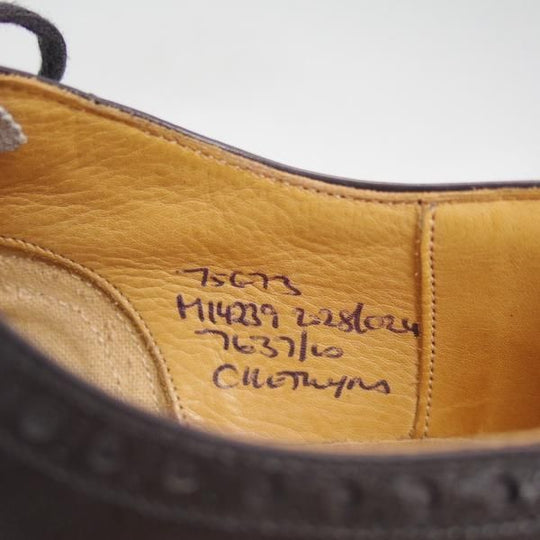 75673
M14239 2028/024
7637/10
Chetwynd